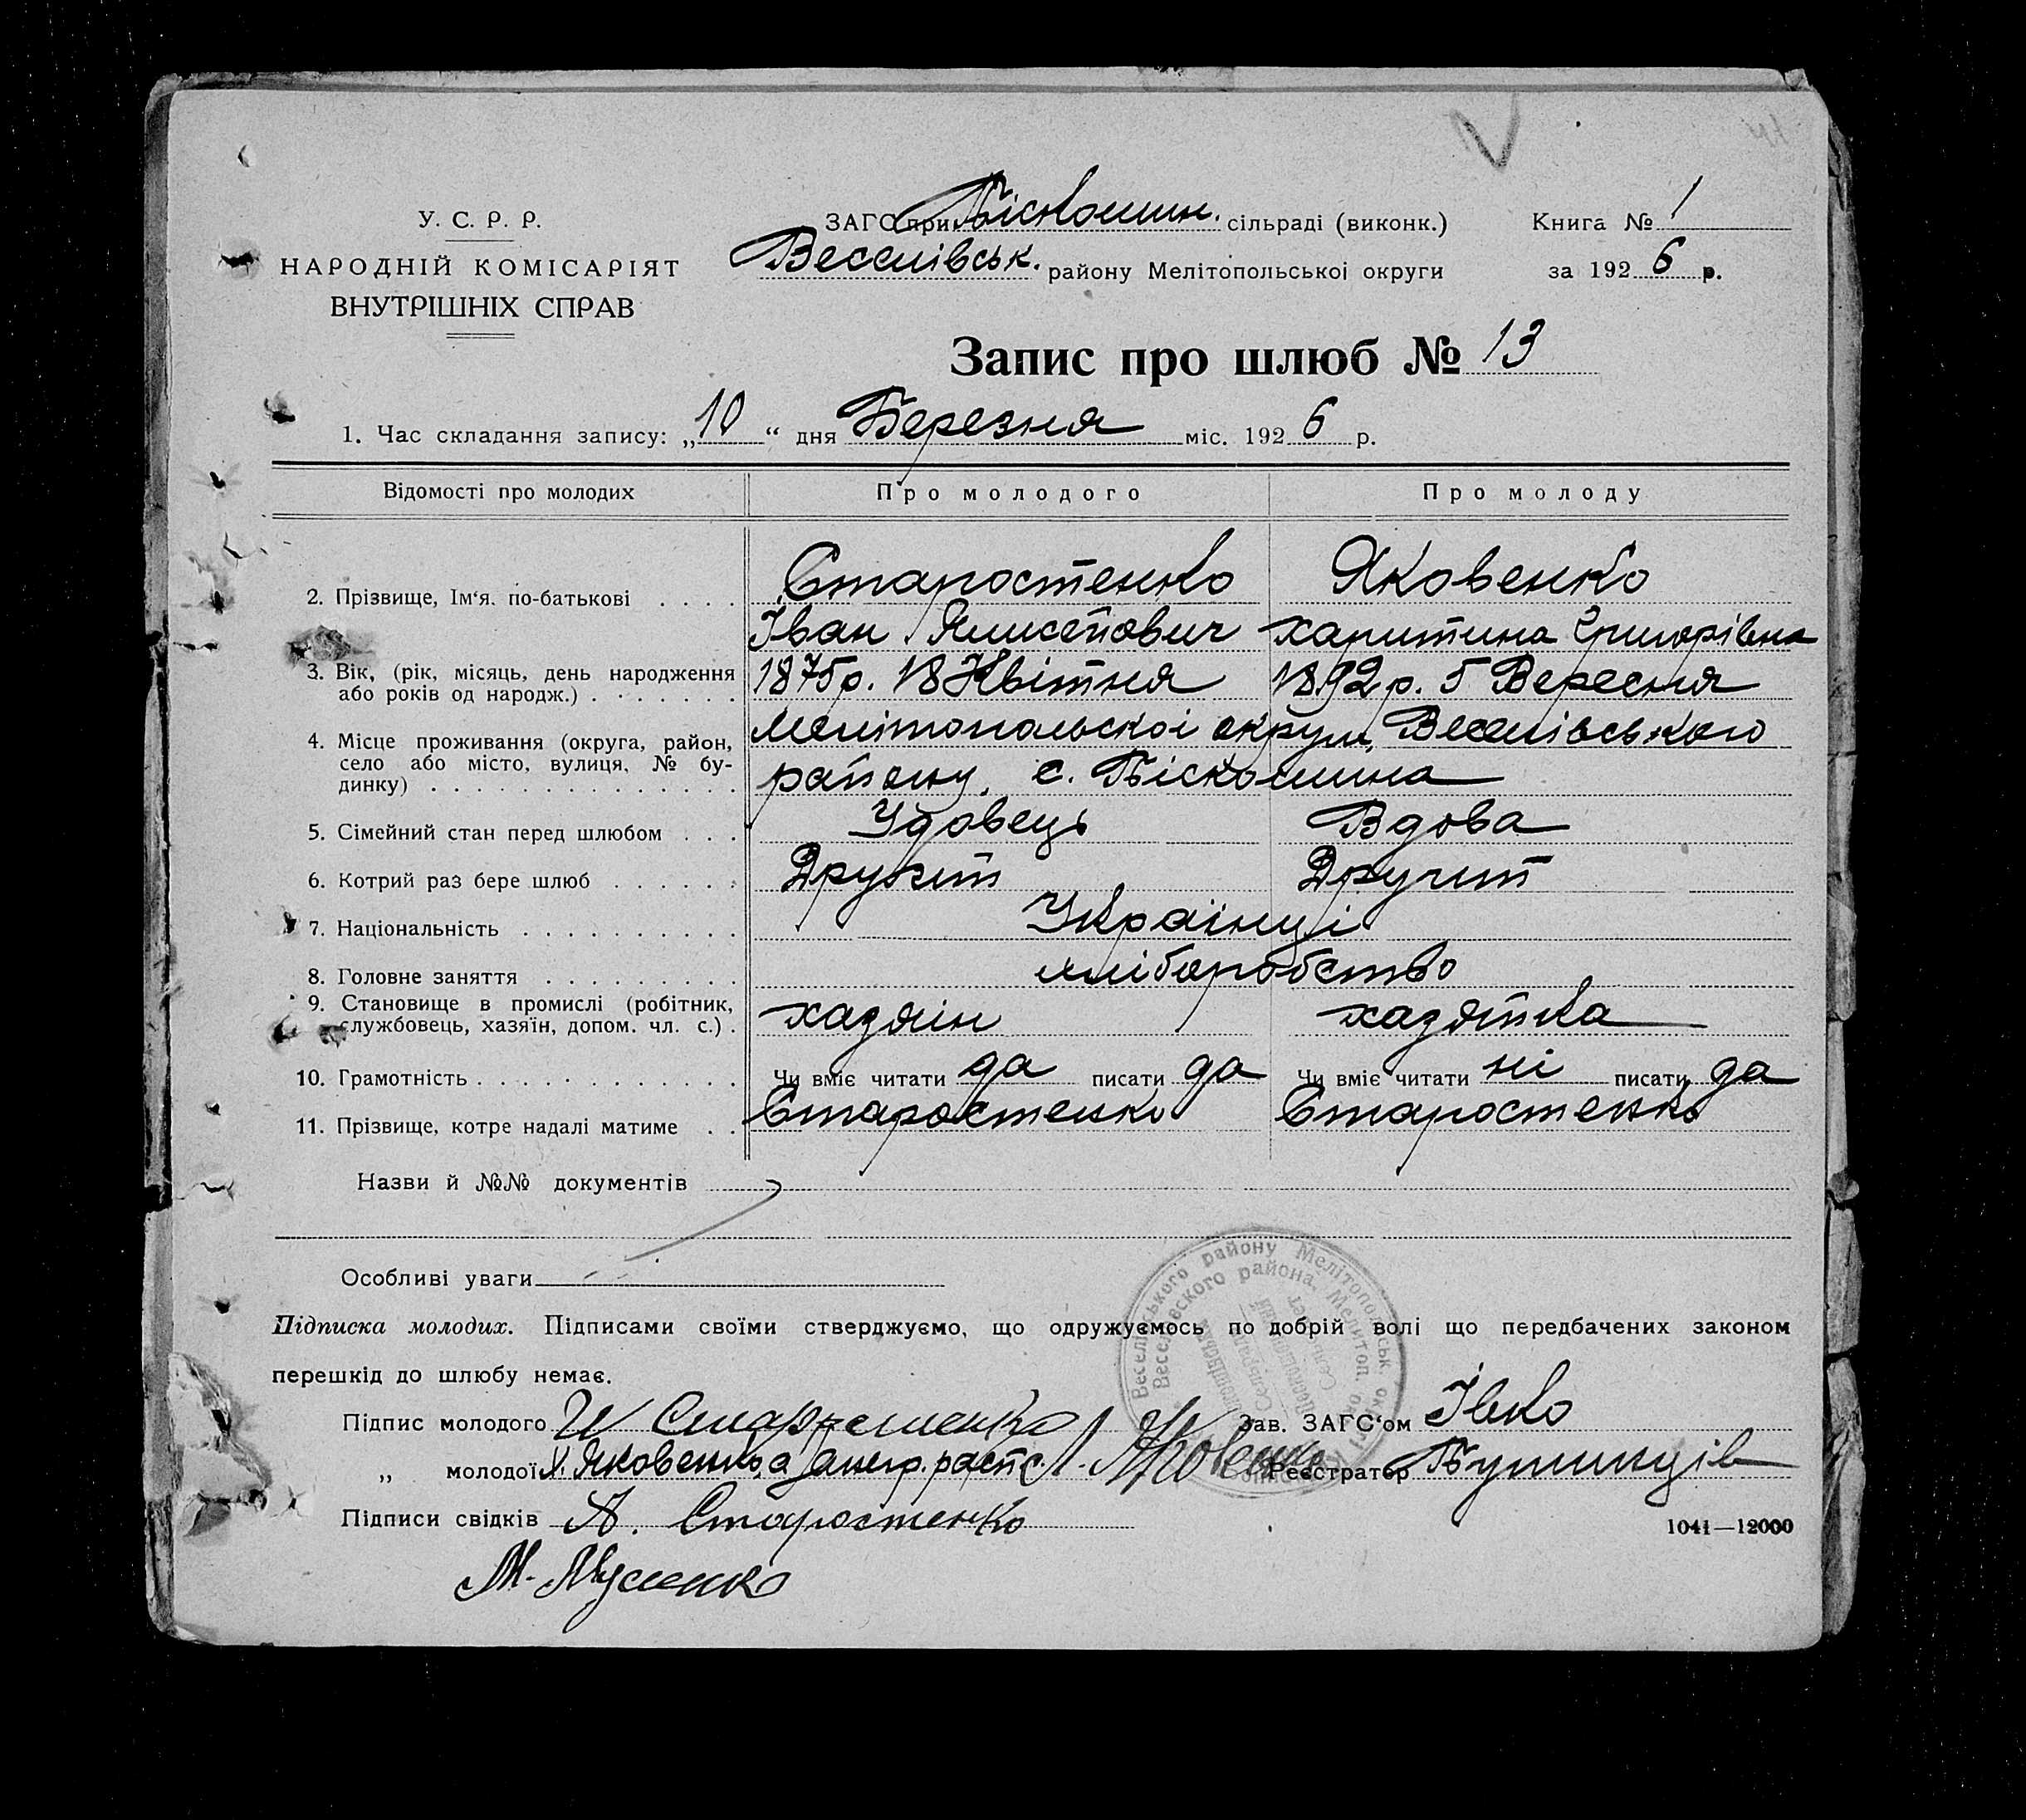 У. С. Р. Р.
НАРОДНІЙ КОМІСАРІЯТ
ВНУТРІШНІХ СПРАВ
ЗАГС при Біскошин. сільраді (виконк.)
Веселівськ. району Мелітопольської округи
Книга № 1
за 1926 р.
Запис про шлюб № 13
1. Час складання запису: „10“ дня Березня міс. 1926 р.
Відомості про молодих Про молодого Про молоду
2. Прізвище, Ім'я, по-батькові . . . . Старостенко Яковенко
Іван Харитина Григорівна
3. Вік, (рік, місяць, день народження
або років од народж.) . . . . . . . 1875р. 18 Квітня 1892 р. 5 Вересня
4. Місце проживання (округа, район,
село або місто, вулиця, № бу-
динку) . . . . . . . . . . . . . . .
Мелітопольскоі округи, Веселівського
району, с. Біскошина
5. Сімейний стан перед шлюбом . . . Удовець Вдова
6. Котрий раз бере шлюб . . . . . . Другит Другит
7. Національність . . . . . . . . . . Українці
8. Головне заняття . . . . . . . . . хліборобство
9. Становище в промислі (робітник,
службовець, хазяїн, допом. чл. с.) . хазяін хазяйка
10. Грамотність . . . . . . . . . . . . Чи вміє читати да писати да Чи вміє читати ні писати да
11. Прізвище, котре надалі матиме . . Старостенко Старостенко
Назви й №№ документів
Особливі уваги
Підписка молодих. Підписами своїми стверджуємо, що одружуємось по добрій волі що передбачених законом
перешкід до шлюбу немає.
Підпис молодого И Старостенко Зав. ЗАГС'ом Івко
„ молодої Х. Яковенко, а за неї Яковенко Реєстратор
Підписи свідків А. Старостенко
М.
1041—12000
Веселівського району Мелітопольськ. округи
Веселовского района, Мелитоп. окр.